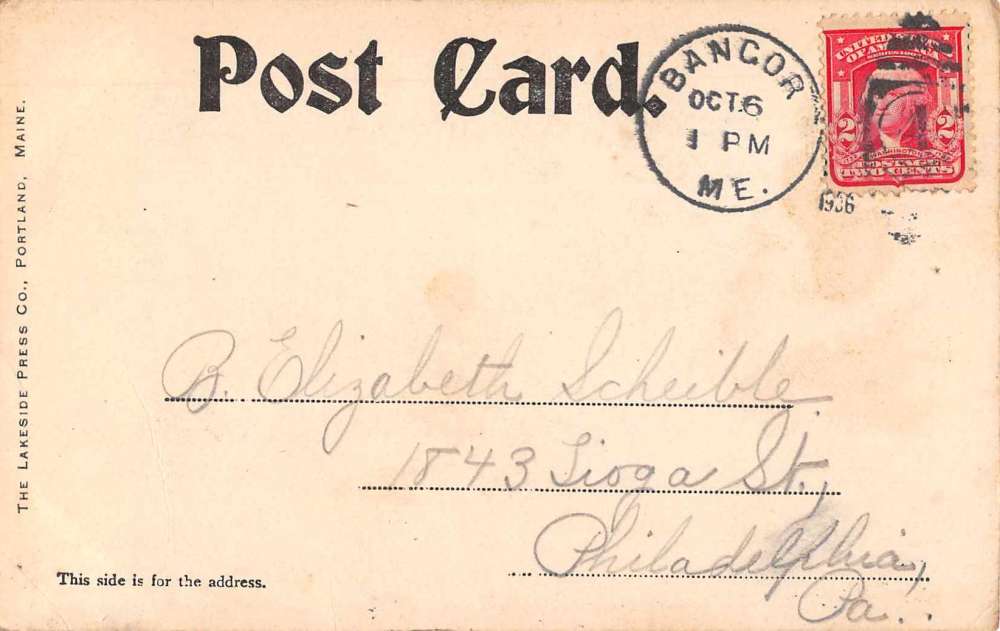 Post Card.
BANGOR
OCT 6
1 PM
ME.
1906
UNITED STATES
OF AMERICA
2 2
WASHINGTON
POSTAGE
TWO CENTS
THE LAKESIDE PRESS CO., PORTLAND, MAINE.
B. Elizabeth Scheible
1843 Tioga St.,
Philadelphia,
Pa..
This side is for the address.